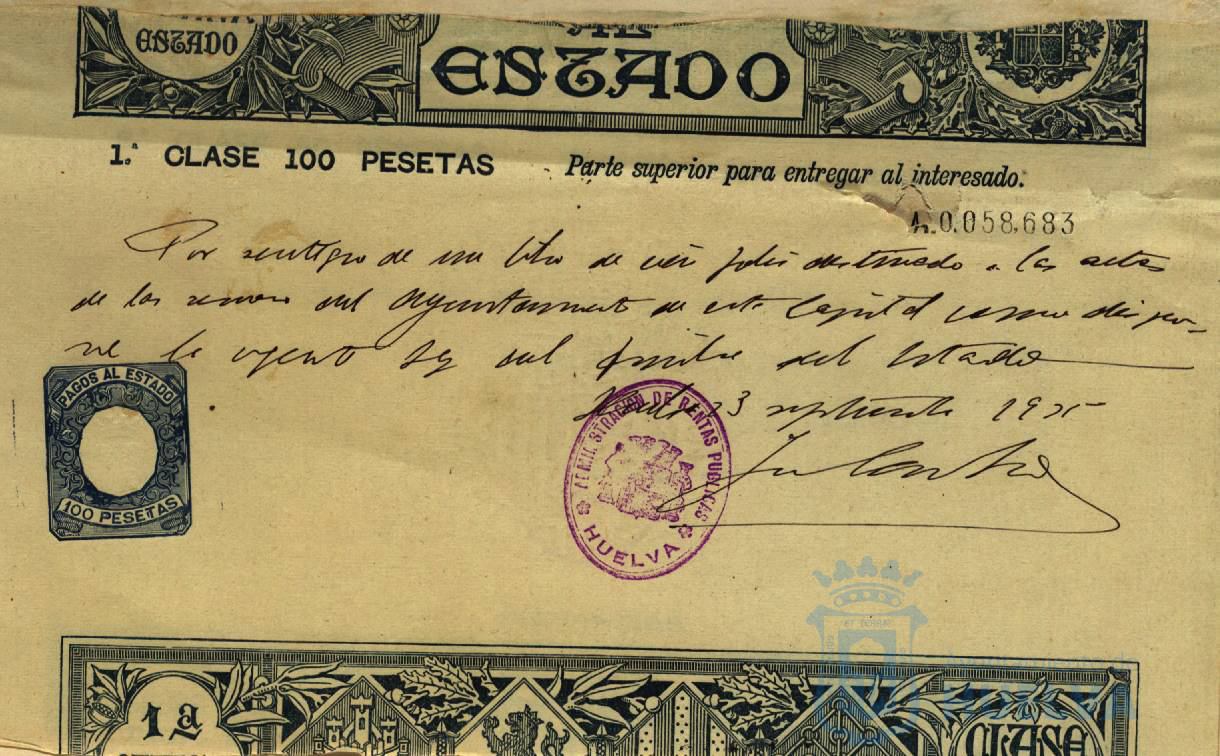 ESTADO
AL
ESTADO
1.ª CLASE 100 PESETAS
Parte superior para entregar al interesado.
A.0.058,683
Por reintegro de un libro de cien folios destinado a las actas
de las sesiones del Ayuntamiento de esta Capital como dispo-
ne la vigente ley del timbre del Estado
Huelva 23 septiembre 1925
PAGOS AL ESTADO
100 PESETAS
ADMINISTRACION DE RENTAS PUBLICAS
HUELVA
Ayuntamiento de
HUELVA
1ª
CLASE